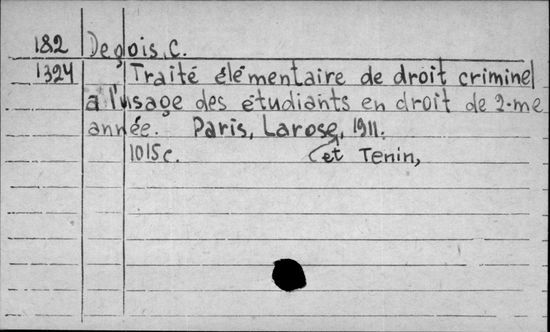 182 Degois, C.
1324 Traité élémentaire de droit criminel
a l'usage des étudiants en droit de 2-me
année. Paris, Larose, 1911.
1015 c. (et Tenin,